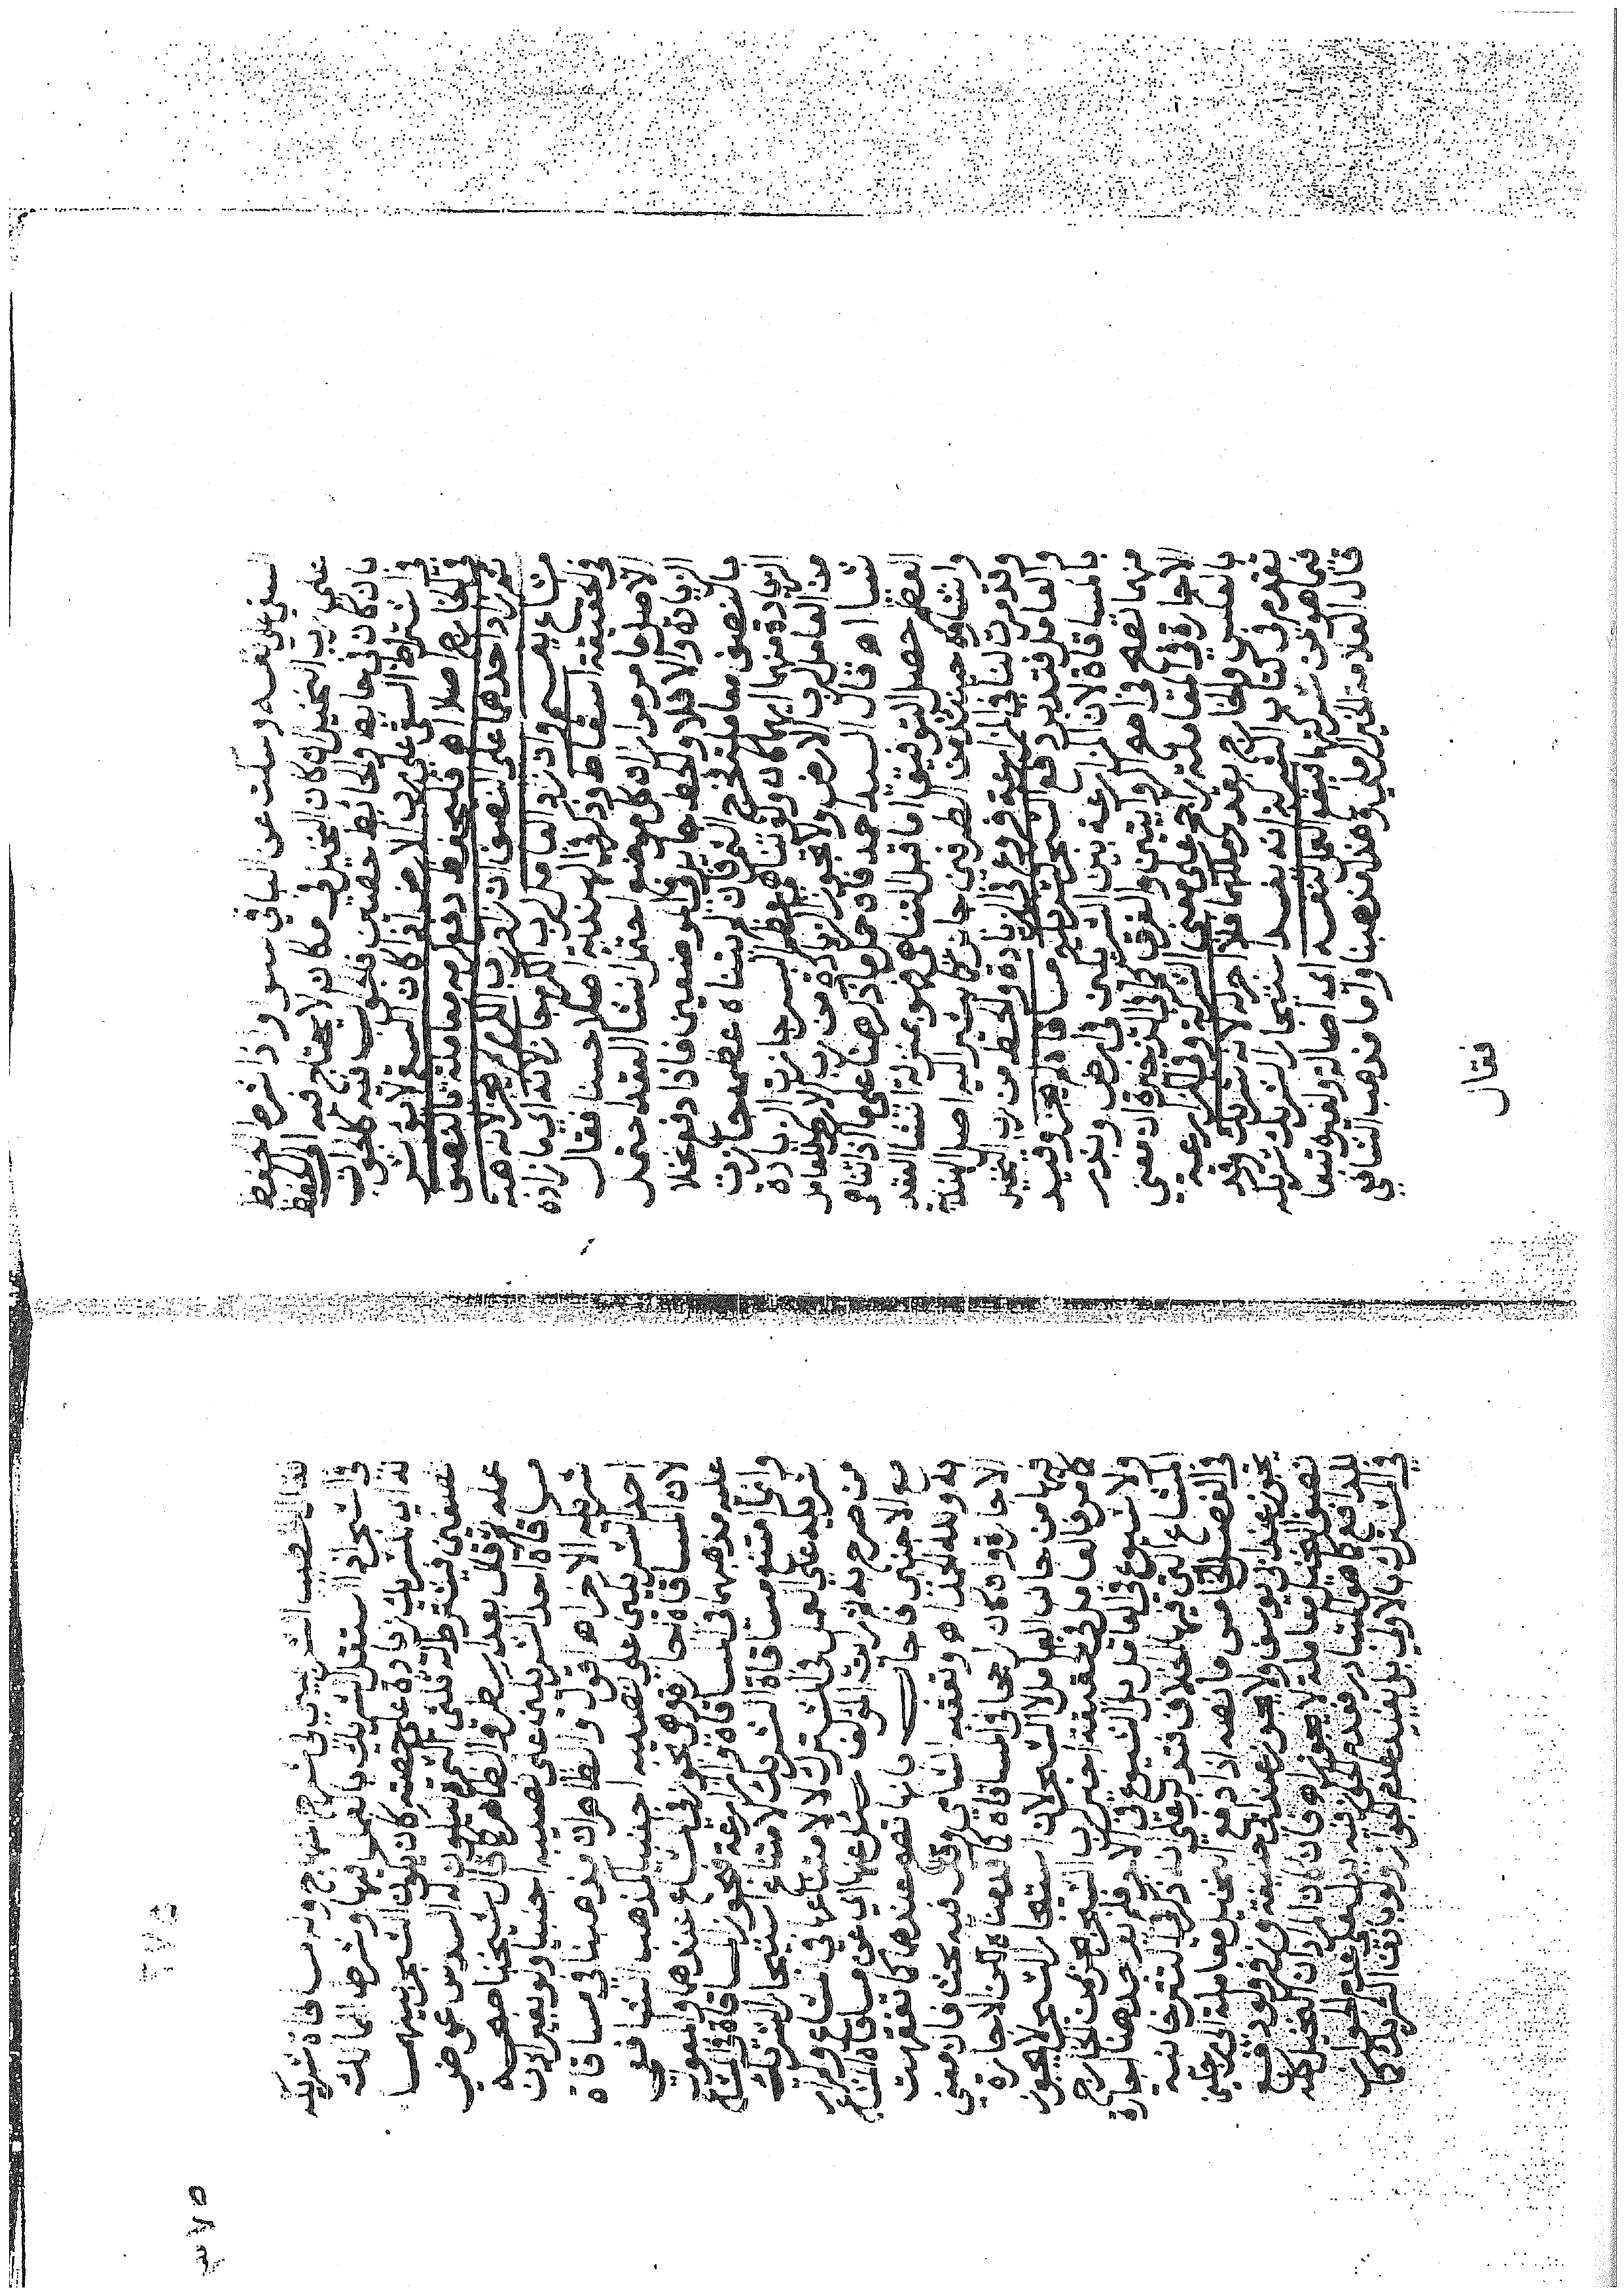 السقي على نفسه وسكت عن الباقي سوا واذا شرط الحفظ
على رب النخيل ان كان النخيل في مكان لا يحتاج فيه الى الحفظ
بان كان في حايط والحايط حصين فالجواب فيه كالجواب
في اشتراط السقي على رب الارض اذا كان السقي لا يوثر
في الخارج اصلا اه فليحفظ دفع كرمه معاملة بالنصف
ثم زاد احدهما على النصف ان زاد رب الكرم لم يجز لانه هبة
مشاع يقسم وان زاد العامل لرب الكرم جاز لانه اي ما زاده
في الحقيقة اسقاط وذكر في الهندية اصلا حسنا فقال
الاصل ما مر مرارا ان كل موضع احتمل انشا العقد احتمل
الزيادة والا فلا والحط جايز في الموضعين فاذا دفع نخلا
بالنصف معاملة فخرج الثمر فان لم يتناه عظمه جازت
الزيادة منهما ايهما كان ولو تناهى عظم البسر جازت الزيادة
من العامل لرب الارض ولا تجوز الزيادة من رب الارض للعامل
شيا اه قال السيد احمد فان حمل ما ذكر هنا على ما اذا تناهى
العظم حصل التوفيق اما قبل التناهي فهو بمنزلة انشا العقد
وانشاوه حينئذ من الطرفين جايز كما يشير اليه اصل الهندية
وقدمت لنا في المزارعة فروع في الزيادة والحط من رب النخيل
والعامل فتدبر دفع الشجر لشريكه مساقاة لم يجز وقيد
بالمساقاة لان المزارعة بين الشريكين في ارض وبذر
منهما تصح في اصح الروايتين والفرق كما في الذخيرة ان معنى
الاجارة في المعاملة راجح على معنى الشركة وفي المزارعة
بالعكس والخارج بقدر ملكهما فلا اجر له لانه شريك وقد
تقدم في كتاب الشركة انه يفسد استيجار الشريك شريكه
فيما هو من شركتهما فيقع العمل لنفسه اي اصالة ولغيره تبعا
قال العلامة الخير الرملي وهذا مذهبنا واما مذهب الشافعي
فقال
فقال الخطيب الشربيني في شرح المنهاج وتصح مساقاة شريكه
في الشجر اذا استقل الشريك بالعمل فيها وشرط المالك
له اي للشريك زيادة على حصته كان يكون الشجر بينهما
نصفين فيشترط له ثلثي الثمر فيكون له السدس عوض
عمله ثم قال بعد اسطر والظاهر كما قال شيخنا صحة
مساقاة احد الشريكين على نصيبه اجنبيا ولو بغير اذن
شريكه الاخر اه اقول والظاهر ان مذهبنا في مساقاة
احد الشريكين على نصيبه اجنبيا كمذهب الشافعي
لان المساقاة تجوز في المشاع عندهما والمعول
عليه مذهبهما في المساقاة والمزارعة فتجوز المساقاة في المشاع
وانما امتنع مساقاة الشريك لامتناع استيجار الشريك
شريكه على العمل في المشترك لا لامتناعها في المشاع ولم ار
من صرح به ثم رايت المولف سئل عنها اي عن مساقاة المشاع
مع الاجنبي فاجاب بانها تصح عندهما كما تفقهت
به ولله الحمد اه وتعقبه الشامي وقال فيه بحث فان معنى
الاجارة وان كان راجحا في المساقاة كما قدمناه لكن الاجارة
فيها من جانب العامل لا الشجر لان استيجار الشجر لا يجوز
كما مر فالعامل في الحقيقة اجير لرب الشجر بجزء من الخارج
ولا شيوع في العامل بل الشيوع في الاجرة فلم يوجد هنا اجارة
المشاع التي فيها الخلاف فتدبر على ان ذكر في التترخانية
في الفصل الخامس ما نصه اذا دفع النخيل معاملة الى رجلين
يجوز عند ابي يوسف ولا يجوز عند ابي حنيفة وزفر ولو دفع
نصف النخيل معاملة لا يجوز اه فان كان المراد ان النخيل كله
للدافع كما هو المتبادر فعدم الجواز فيه يدل على عدم الجواز
في المشترك بالاولى بل يفيد عدم الجواز ولو باذن الشريك كما